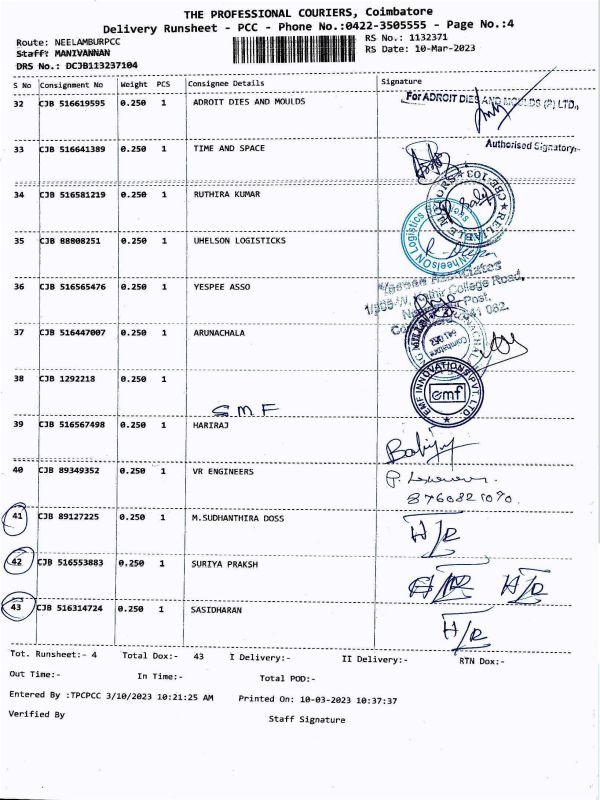 THE PROFESSIONAL COURIERS, Coimbatore
Delivery Runsheet - PCC - Phone No.:0422-3505555 - Page No.:4
Route: NEELAMBURPCC RS No.: 1132371
Staff: MANIVANNAN RS Date: 10-Mar-2023
DRS No.: DCJB113237104
S No Consignment No Weight PCS Consignee Details Signature
32 CJB 516619595 0.250 1 ADROIT DIES AND MOULDS For ADROIT DIES AND MOULDS (P) LTD.,
Authorised Signatory
33 CJB 516641389 0.250 1 TIME AND SPACE
34 CJB 516581219 0.250 1 RUTHIRA KUMAR
35 CJB 88808251 0.250 1 UHELSON LOGISTICKS
36 CJB 516565476 0.250 1 YESPEE ASSO
37 CJB 516447007 0.250 1 ARUNACHALA
38 CJB 1292218 0.250 1
EMF INNOVATIONS PVT. LTD.
emf
39 CJB 516567498 0.250 1 HARIRAJ
40 CJB 89349352 0.250 1 VR ENGINEERS
41 CJB 89127225 0.250 1 M.SUDHANTHIRA DOSS
42 CJB 516553883 0.250 1 SURIYA PRAKSH
43 CJB 516314724 0.250 1 SASIDHARAN
Tot. Runsheet:- 4 Total Dox:- 43 I Delivery:- II Delivery:- RTN Dox:-
Out Time:- In Time:- Total POD:-
Entered By :TPCPCC 3/10/2023 10:21:25 AM Printed On: 10-03-2023 10:37:37
Verified By Staff Signature